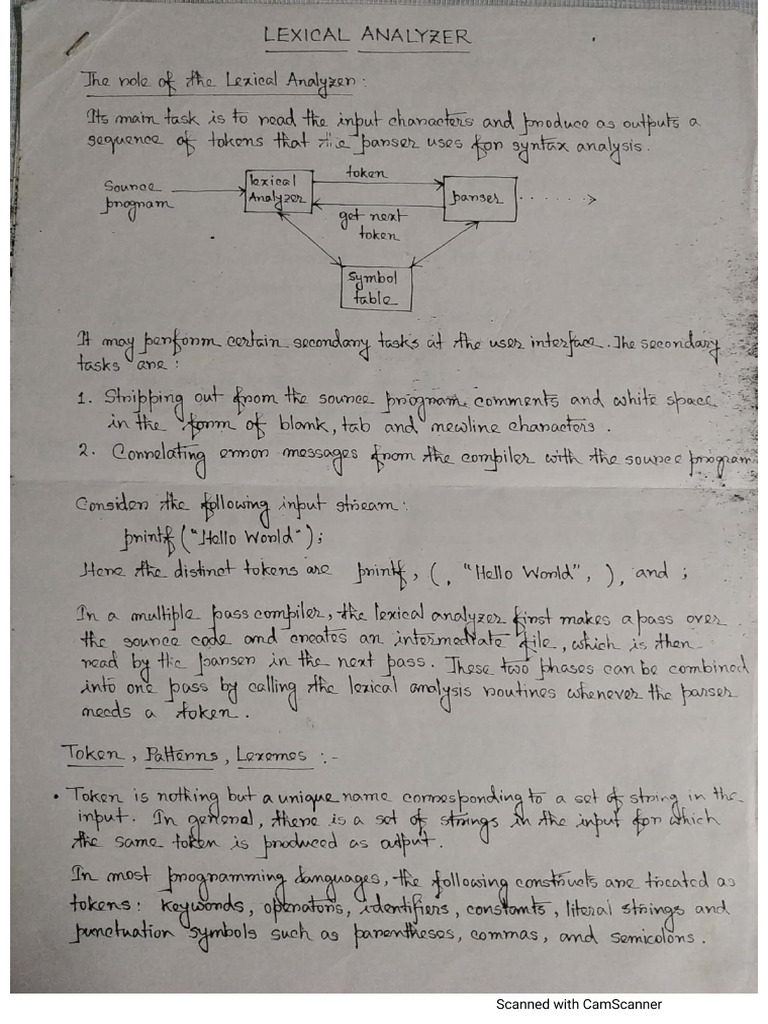 LEXICAL ANALYZER
The role of the Lexical Analyzer:
Its main task is to read the input characters and produce as outputs a
sequence of tokens that the parser uses for syntax analysis.
Source
program
lexical
Analyzer
token
get next
token
parser
symbol
table
It may perform certain secondary tasks at the user interface. The secondary
tasks are:
1. Stripping out from the source program comments and white space
in the form of blank, tab and newline characters.
2. Correlating error messages from the compiler with the source program
Consider the following input stream:
printf ("Hello World");
Here the distinct tokens are printf, (, "Hello World", ), and ;
In a multiple pass compiler, the lexical analyzer first makes a pass over
the source code and creates an intermediate file, which is then
read by the parser in the next pass. These two phases can be combined
into one pass by calling the lexical analysis routines whenever the parser
needs a token.
Token, Patterns, Lexemes :-
• Token is nothing but a unique name corresponding to a set of string in the
input. In general, there is a set of strings in the input for which
the same token is produced as output.
In most programming languages, the following constructs are treated as
tokens: keywords, operators, identifiers, constants, literal strings and
punctuation symbols such as parentheses, commas, and semicolons.
Scanned with CamScanner